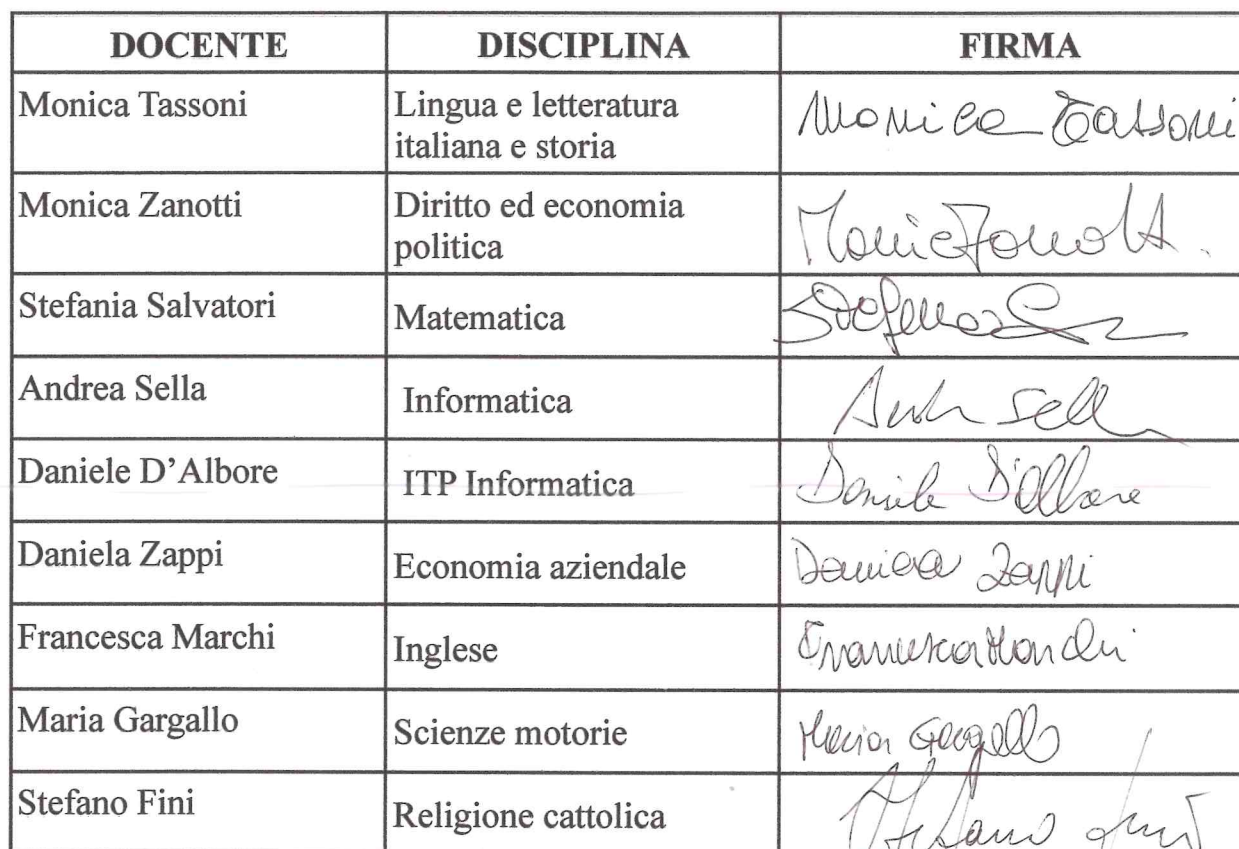 DOCENTE DISCIPLINA FIRMA
Monica Tassoni Lingua e letteratura italiana e storia Monica Tassoni
Monica Zanotti Diritto ed economia politica Monica Zanotti
Stefania Salvatori Matematica Stefania
Andrea Sella Informatica Andrea Sella
Daniele D'Albore ITP Informatica Daniele D'Albore
Daniela Zappi Economia aziendale Daniela Zappi
Francesca Marchi Inglese Francesca Marchi
Maria Gargallo Scienze motorie Maria Gargallo
Stefano Fini Religione cattolica Stefano Fini